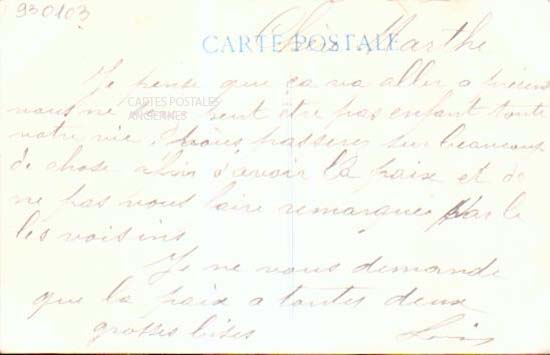 930103
Chère Marthe
CARTE POSTALE
Je pense que ça va aller a présent
CARTES POSTALES
ANCIENNES
vous ne serez peut être pas enfant toute
votre vie. Vous passerez sur beaucoup
de chose afin d'avoir la paix et de
ne pas vous faire remarquer par le
les voisins
Je ne vous demande
que la paix a toutes deux
grosses bises Loïs